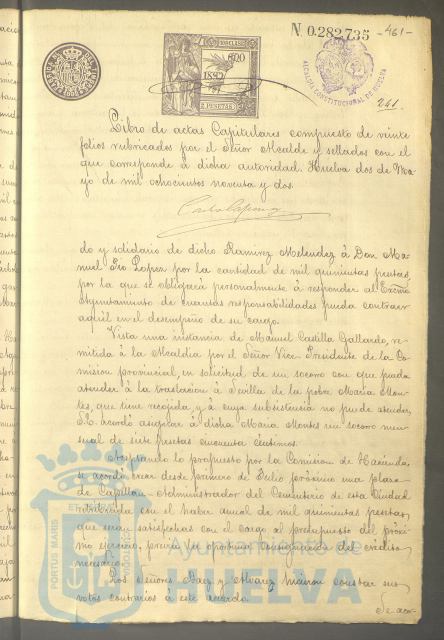 Nº 0.282,735 -461-
10ª CLASE
1892
2 PESETAS
ALCALDÍA CONSTITUCIONAL DE HUELVA
241.
Libro de actas Capitulares compuesto de veinte
folios rubricados por el Señor Alcalde y sellados con el
que corresponde á dicha autoridad. Huelva dos de Ma-
yo de mil ochocientos noventa y dos.
do y solidario de dicho Ramirez Melendez á Don Ma-
nuel Pio Lopez por la cantidad de mil quinientas pesetas,
por la que se obligará personalmente á responder al Excmo
Ayuntamiento de cuantas responsabilidades pueda contraer
aquél en el desempeño de su cargo.
Vista una instancia de Manuel Castilla Gallardo, re-
mitida á la Alcaldia por el Señor Vice-Presidente de la Co-
mision provincial, en solicitud de un socorro con que pueda
atender á la traslacion á Sevilla de la pobre Maria Mon-
tes, que tiene recojida, y á cuya subsistencia no puede atender,
S.E. acordó asignar á dicha Maria Montes un socorro men-
sual de siete pesetas cincuenta céntimos.
Aceptando lo propuesto por la Comision de Hacienda,
se acordó crear desde primero de Julio próximo una plaza
de Capellan-Administrador del Cementerio de esta Ciudad
retribuida con el haber anual de mil quinientas pesetas,
que serán satisfechas con el cargo al presupuesto del próxi-
mo ejercicio, prévia la oportuna consignacion de crédito
necesario.
Los Señores Baez y Alvarez hicieron constar sus
votos contrarios á este acuerdo.
Se acor-
PORTUS MARIS
Ayuntamiento de
HUELVA